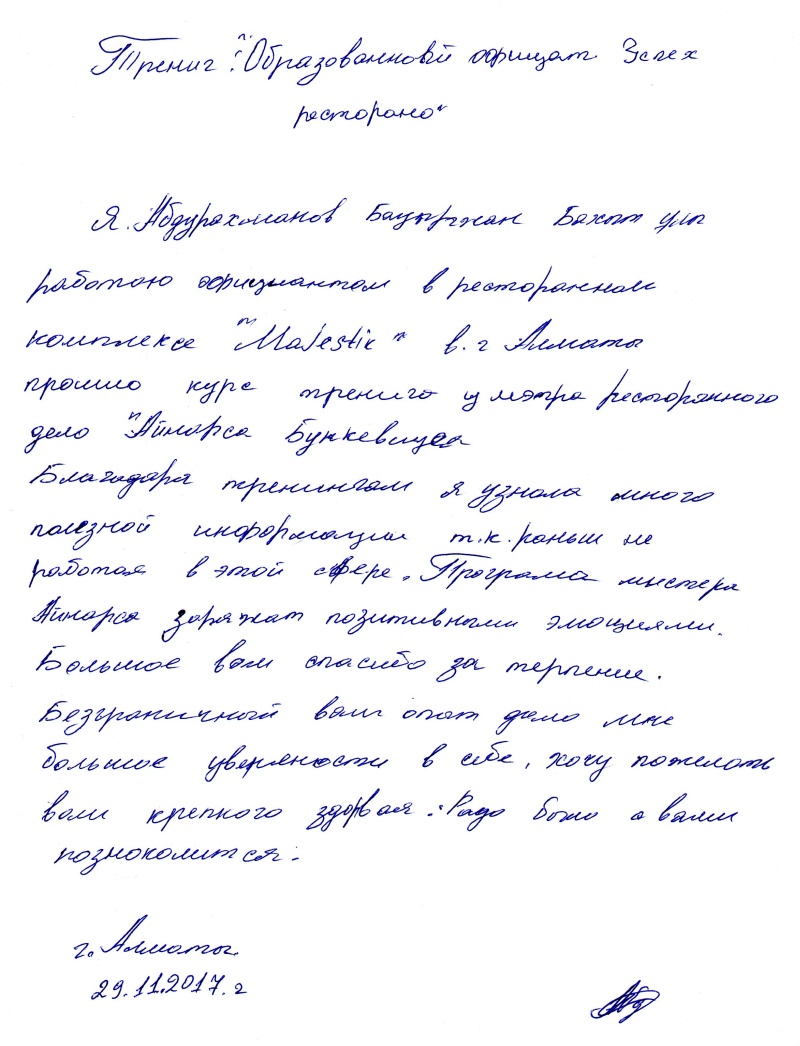 Трениг: "Образованный офицат Успех
ресторано"
Я. Абдурахманов Бауыржан Бахыт улы
работаю официантом в ресторанном
комплексе "Majestik" в.г Алматы
прошло курс тренига у мэтра ресторанного
дело "Айнарса Бункевицса
Благодаря тренингам я узнала много
полезной информации т.к. раньш не
работая в этой сфере. Програма мистера
Айнарса заряжат позитивными эмоциями.
Большое вам спасибо за терпение.
Безграничный ваш опыт дало мне
большое уверяности в себе, хочу пожелать
вам крепкого здоровая. Радо было с вами
познокомится.
г. Алматы.
29.11.2017. г